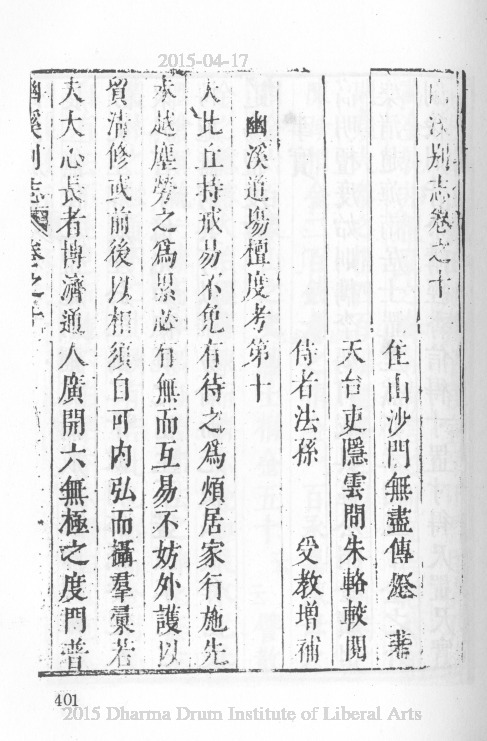 2015-04-17
別志卷之十
住山沙門無盡傳燈 著
天台吏隱雲間朱輅較閱
侍者法孫 受教增補
幽溪道場檀度考第十
大比丘持戒易不免有待之為煩居家行施先
來越塵勞之為累必有無而互易不妨外護以
資清修或前後以相須自可內弘而攝羣彙若
夫大心長者博濟通人廣開六無極之度門普
幽溪別志 卷之十
401
2015 Dharma Drum Institute of Liberal Arts